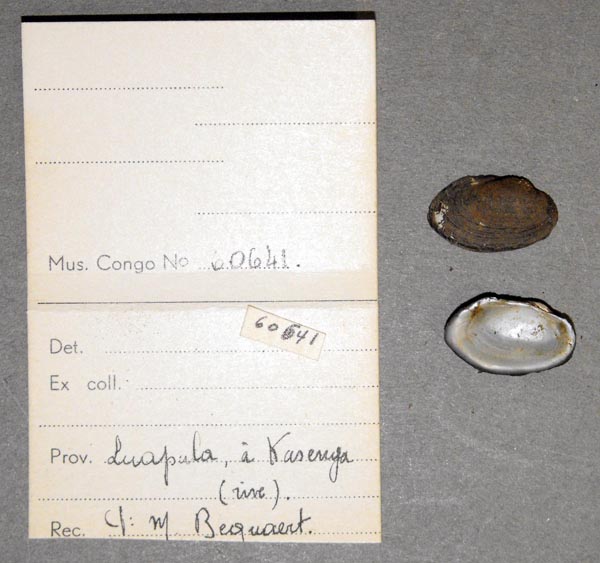 Mus. Congo No 60641.
60641
Det.
Ex coll.
Prov. Luapula, à Kasenga
(rive).
Rec. J. M. Bequaert.